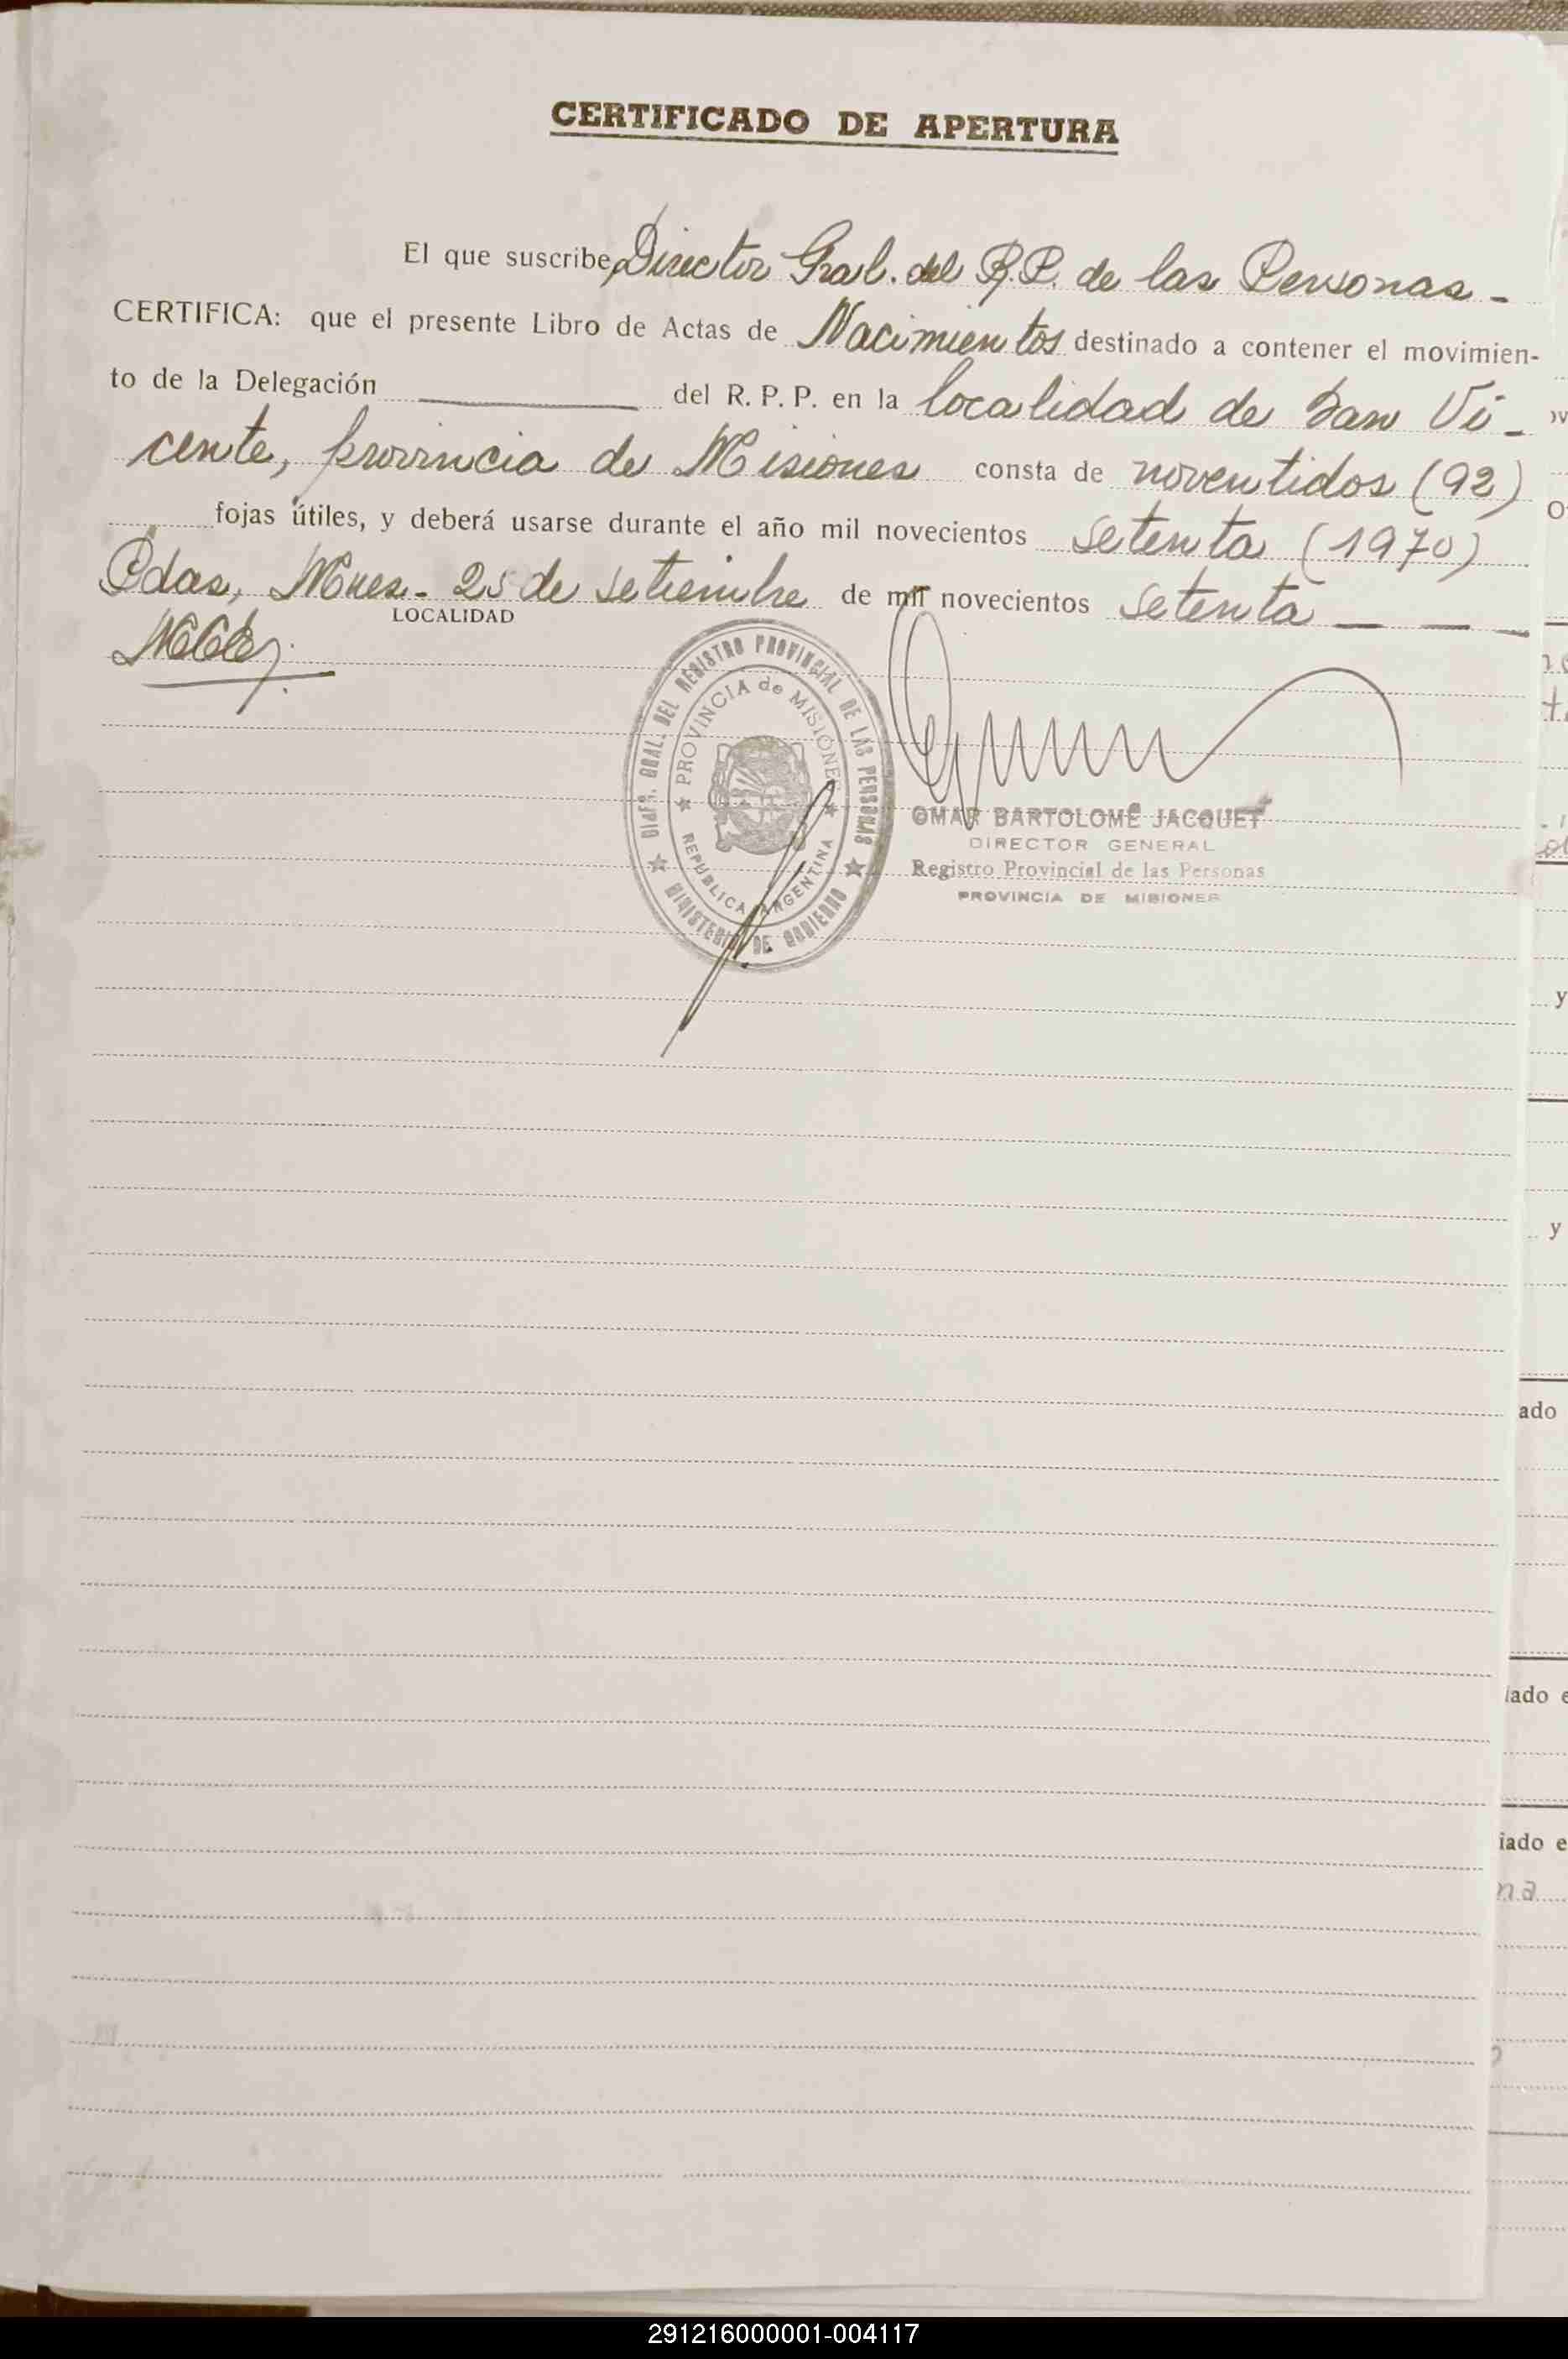 CERTIFICADO DE APERTURA
El que suscribe, Director Gral. del R.P. de las Personas -
CERTIFICA: que el presente Libro de Actas de Nacimientos destinado a contener el movimien-
to de la Delegación ______ del R. P. P. en la localidad de San Vi-
cente, provincia de Misiones consta de noventidos (92)
fojas útiles, y deberá usarse durante el año mil novecientos setenta (1970)
Pdas, Mnes.- 25 de setiembre de mil novecientos setenta — — —
LOCALIDAD
DIREC. GRAL. DEL REGISTRO PROVINCIAL DE LAS PERSONAS
MINISTERIO DE GOBIERNO
PROVINCIA de MISIONES
REPUBLICA ARGENTINA
OMAR BARTOLOMÉ JACQUET
DIRECTOR GENERAL
Registro Provincial de las Personas
PROVINCIA DE MISIONES
y
y
ado
iado e
iado e
na
291216000001-004117